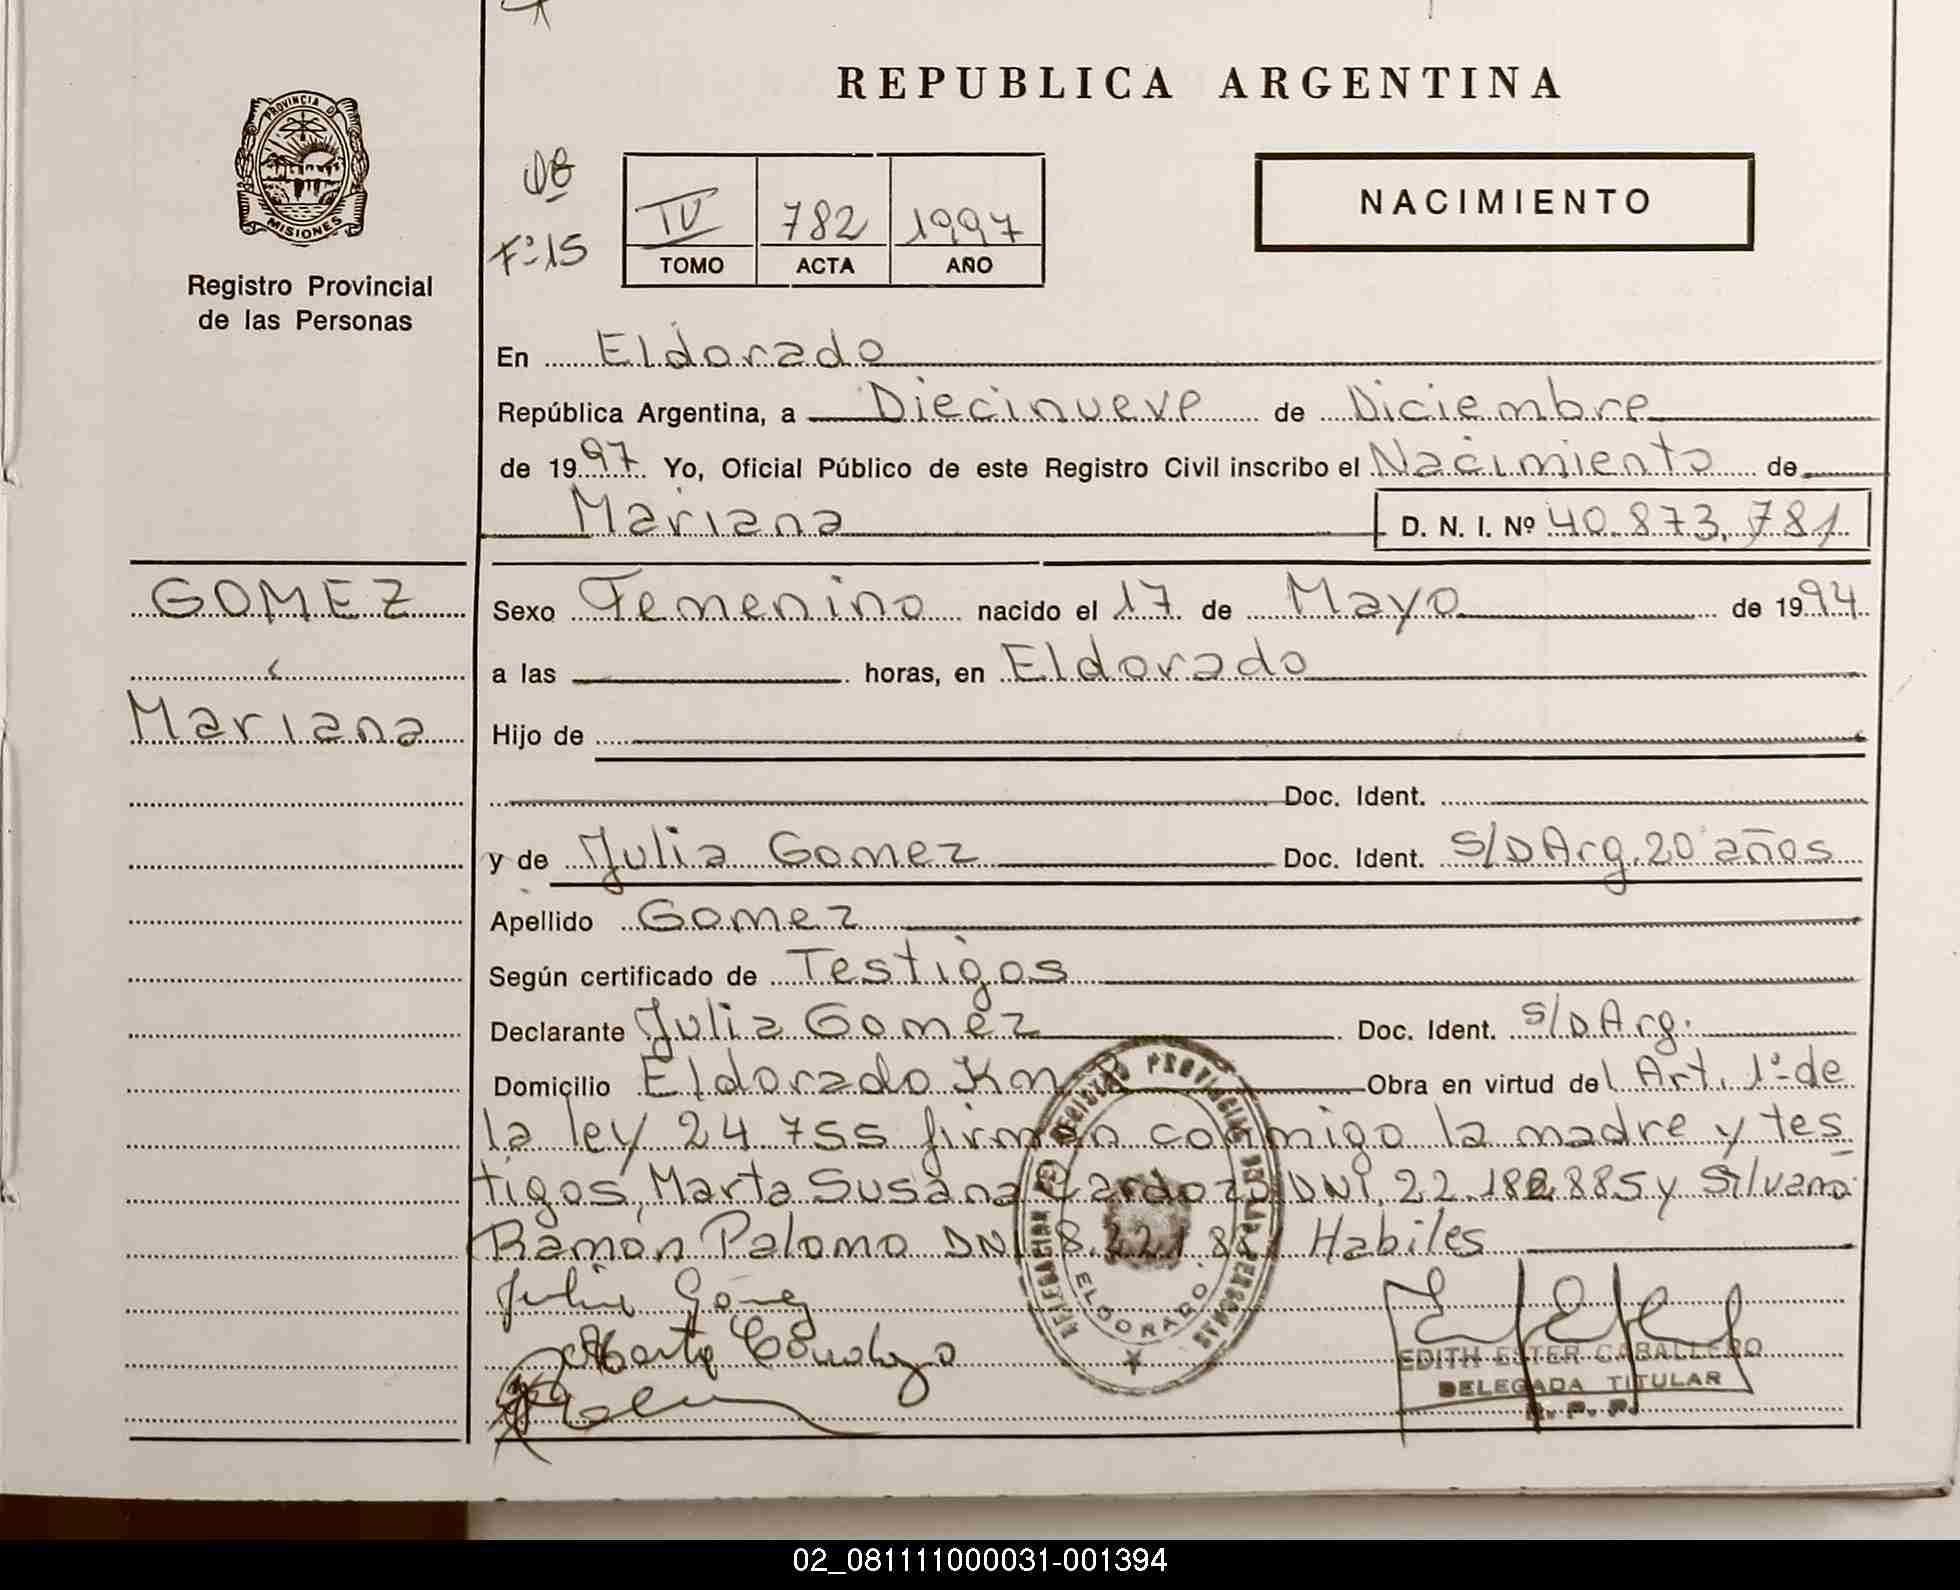 REPUBLICA ARGENTINA
PROVINCIA D
MISIONES
Registro Provincial
de las Personas
Fº 15
IV 782 1997
TOMO ACTA AÑO
NACIMIENTO
En Eldorado
República Argentina, a Diecinueve de Diciembre
de 1997 Yo, Oficial Público de este Registro Civil inscribo el Nacimiento de
Mariana D. N. I. Nº 40.873.781
GOMEZ
Mariana
Sexo Femenino nacido el 17 de Mayo de 1994
a las horas, en Eldorado
Hijo de
Doc. Ident.
y de Julia Gomez Doc. Ident. S/D Arg. 20 años
Apellido Gomez
Según certificado de Testigos
Declarante Julia Gomez Doc. Ident. S/D Arg.
Domicilio Eldorado Km Obra en virtud del Art. 1º de
la ley 24.755 firman conmigo la madre y tes
tigos, Marta Susana Cardozo DNI. 22.182.885 y Silvano
Ramón Palomo DNI 8.221.88 Habiles
DELEGACION REGISTRO PROVINCIAL DE LAS PERSONAS
ELDORADO
Julia Gómez
EDITH ESTER CABALLERO
DELEGADA TITULAR
R. P. P.
02_081111000031-001394